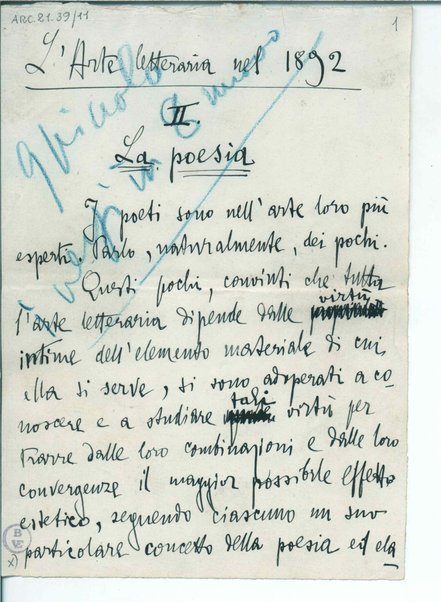 ARC.21.39/11
1
L'Arte letteraria nel 1892
II.
La poesia
I poeti sono nell'arte loro più
esperti. Parlo, naturalmente, dei pochi.
Questi pochi, convinti che tutta
l'arte letteraria dipende dalle virtù
intime dell'elemento materiale di cui
ella si serve, si sono adoperati a co-
noscere e a studiare tali virtù per
trarre dalle loro combinazioni e dalle loro
convergenze il maggior possibile effetto
estetico, seguendo ciascuno un suo
particolare concetto della poesia ed ela-
x)